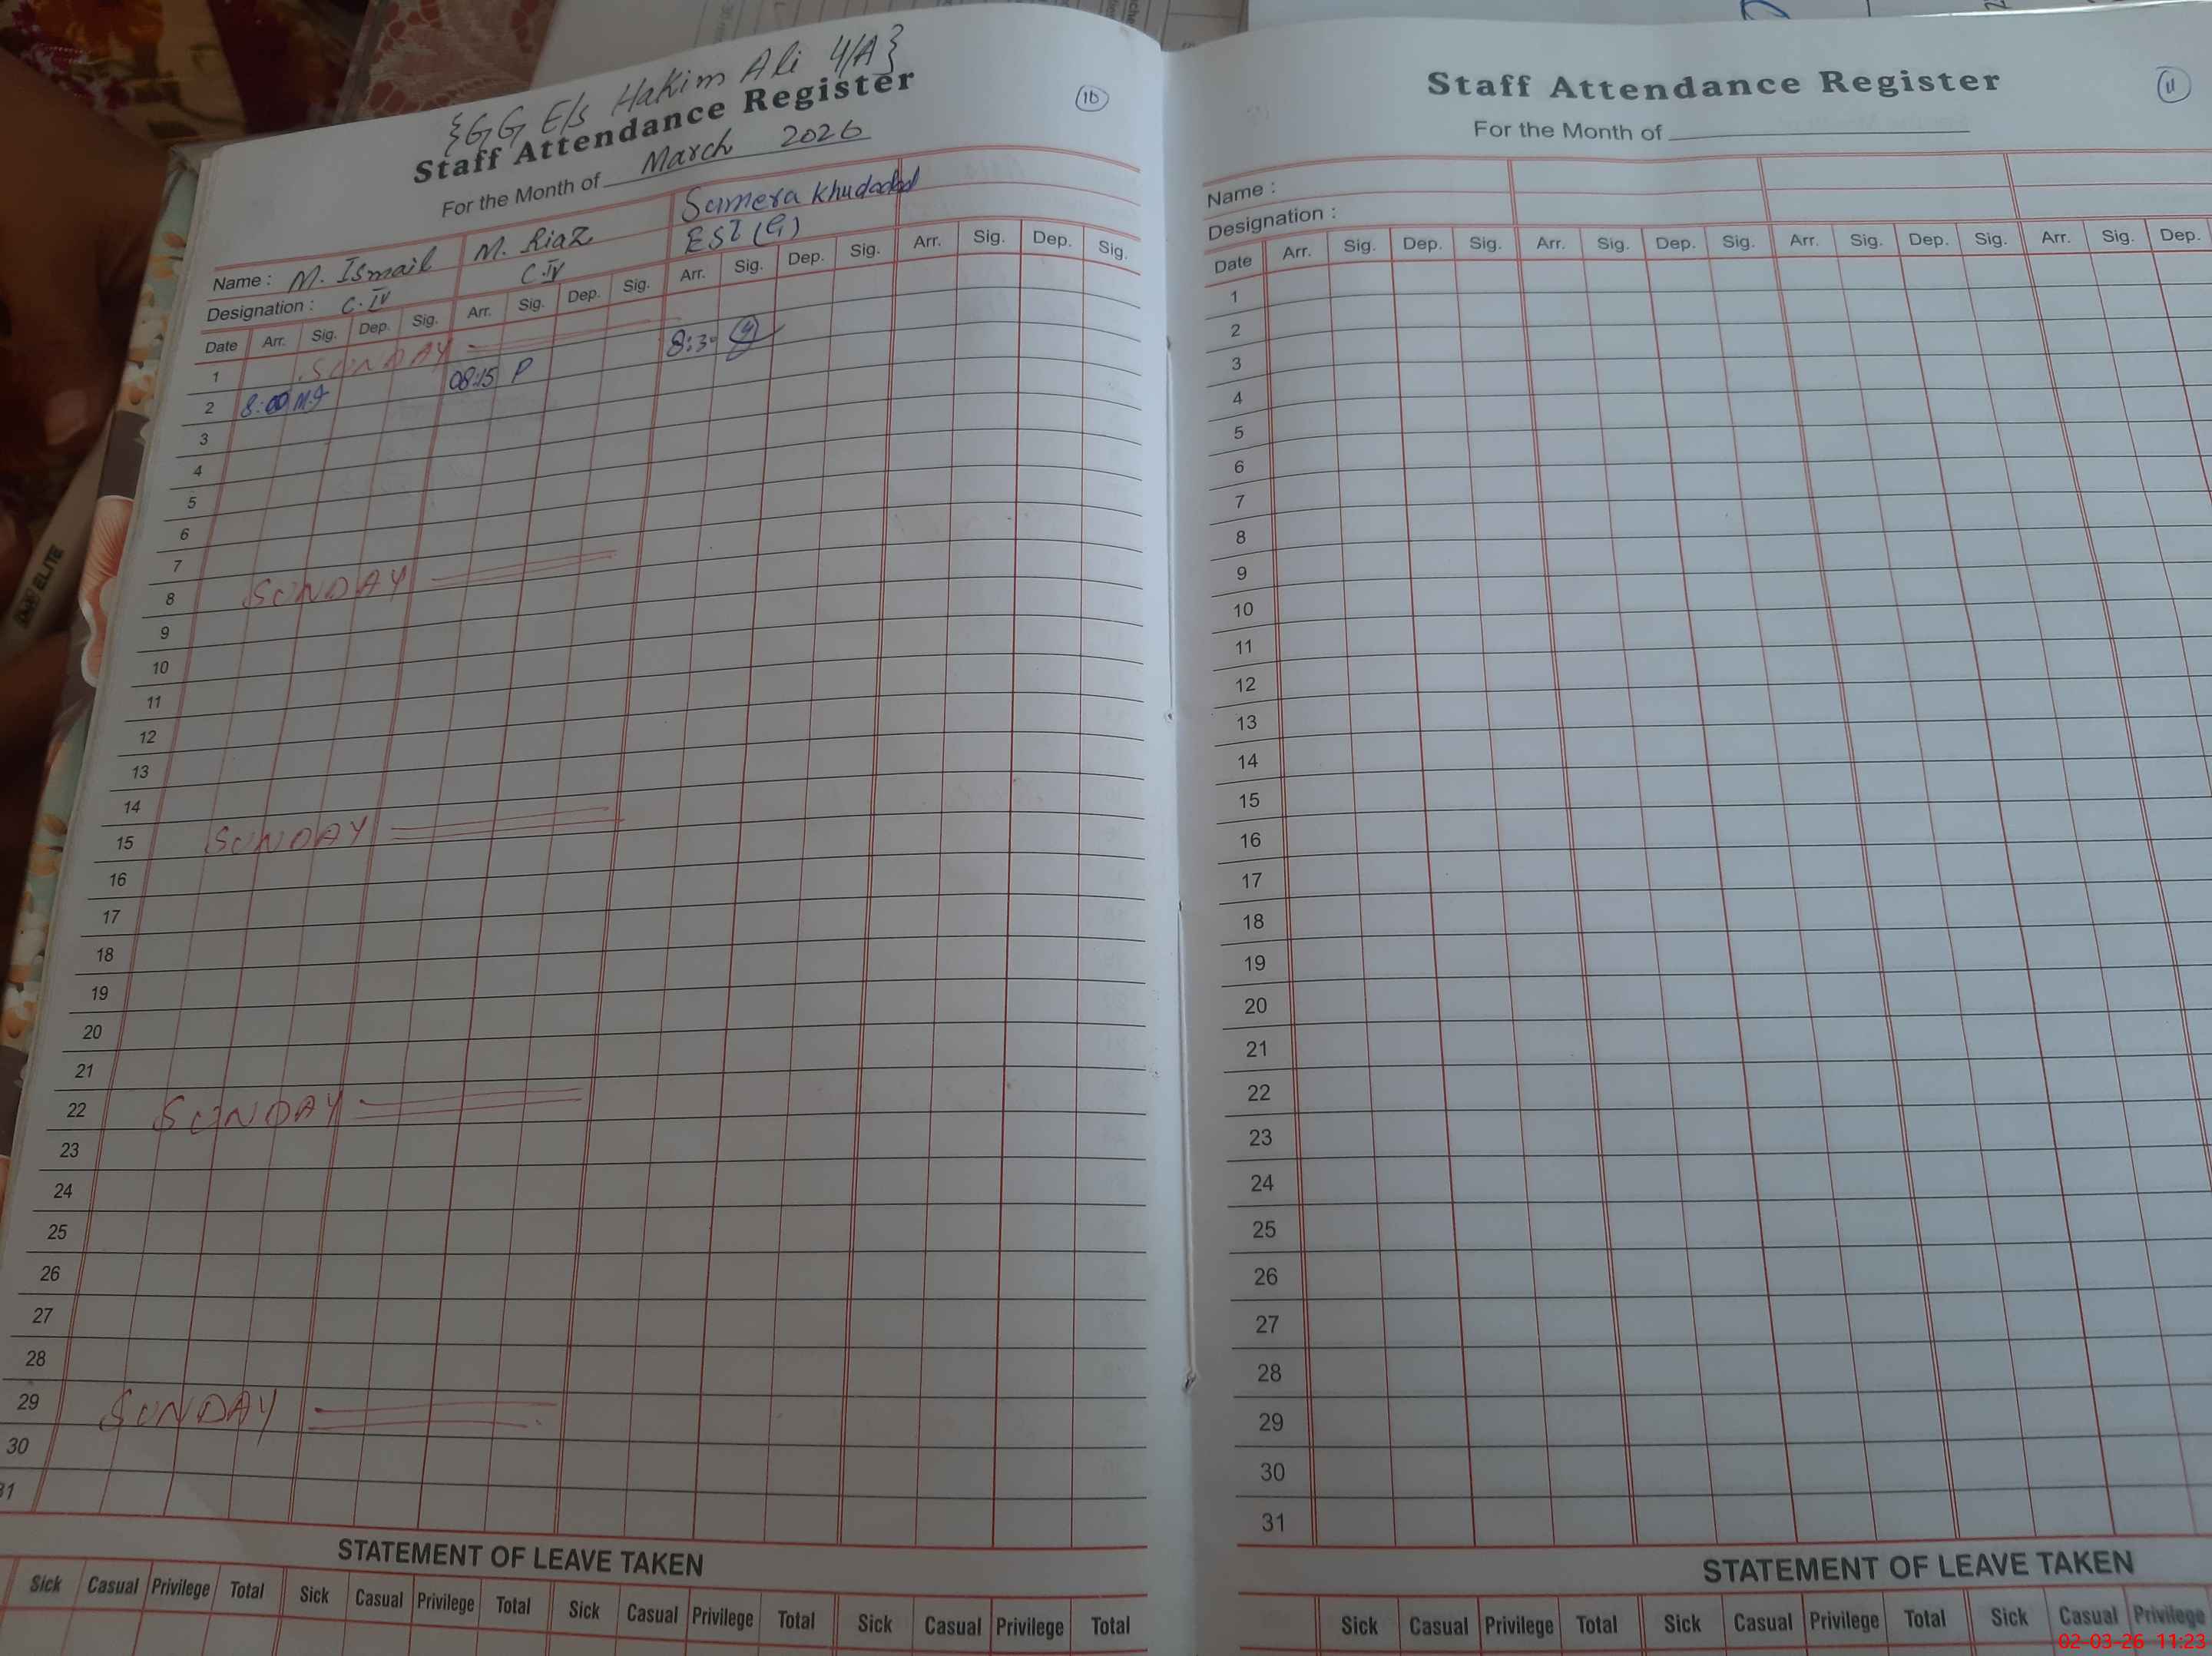 {GG E/s Hakim Ali 4/A}
Staff Attendance Register
10
For the Month of March 2026
Name : M. Ismail M. Riaz Sumera Khudadad
Designation : C.IV C.IV EST (G)
Date Arr. Sig. Dep. Sig. Arr. Sig. Dep. Sig. Arr. Sig. Dep. Sig. Arr. Sig. Dep. Sig.
1 SUNDAY
2 8:00 M.I 08:15 P 8:30
3
4
5
6
7
8 SUNDAY
9
10
11
12
13
14
15 SUNDAY
16
17
18
19
20
21
22 SUNDAY
23
24
25
26
27
28
29 SUNDAY
30
31
STATEMENT OF LEAVE TAKEN
Sick Casual Privilege Total Sick Casual Privilege Total Sick Casual Privilege Total Sick Casual Privilege Total
Staff Attendance Register
11
For the Month of
Name :
Designation :
Date Arr. Sig. Dep. Sig. Arr. Sig. Dep. Sig. Arr. Sig. Dep. Sig. Arr. Sig. Dep.
1
2
3
4
5
6
7
8
9
10
11
12
13
14
15
16
17
18
19
20
21
22
23
24
25
26
27
28
29
30
31
STATEMENT OF LEAVE TAKEN
Sick Casual Privilege Total Sick Casual Privilege Total Sick Casual Privilege
ELITE
02-03-26 11:23